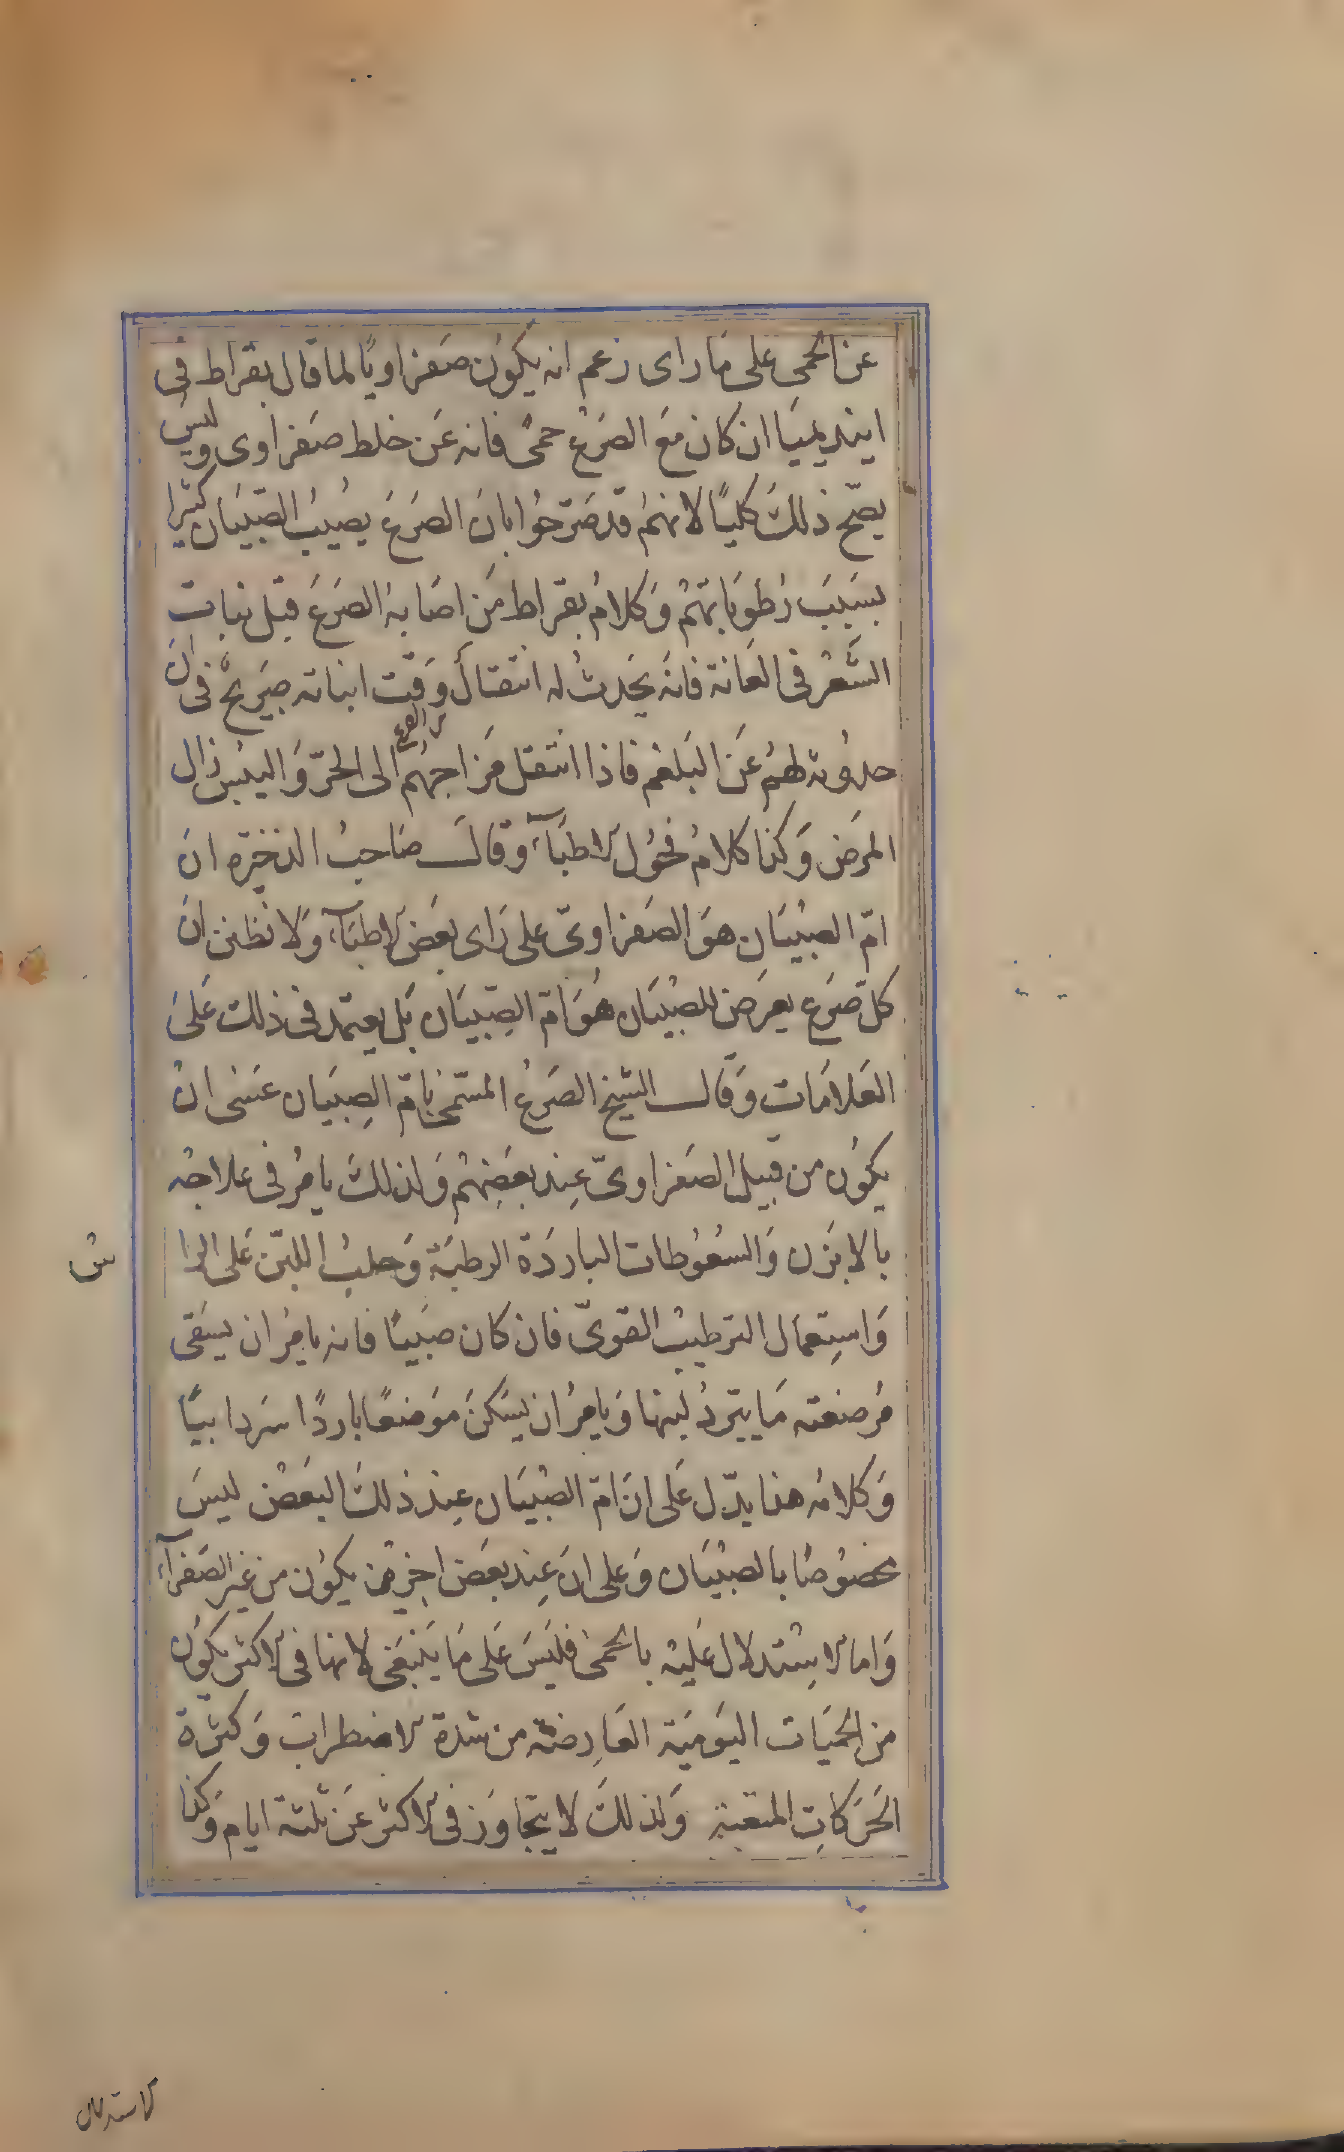 عن الحمى على ما راى زعم انه يكون صفراويًا لما قال بقراط فى
ابيديميا ان كان مع الصرع حمىً فانه عن خلط صفراوى وليس
يصحّ ذلك كليًا لانهم قد صرّحوا بان الصرع يصيب الصّبيان كثيرا
بسبب رطوباتهم وكلام بقراط من اصابه الصرع قبل نبات
الشعر فى العانة فانه يحدث له انتقال وقت انباته صريح فى ان
حدوثه لهم عن البلغم فاذا انتقل مزاجهم الى الحرّ واليبس زال
المرض وكذا كلام فحول الاطبآء وقال صاحب الذخيره ان
امّ الصبيان هو الصفراوىّ على راى بعض الاطبآء ولا تظنن ان
كلّ صرع يعرض للصبيان هو امّ الصّبيان بل يعتمد فى ذلك على
العلامات وقال الشيخ الصرع المسمّى بامّ الصبيان عسى ان
يكون من قبيل الصفراوىّ عند بعضهم ولذلك يامر فى علاجه
بالابزن والسعوطات الباردة الرطبة وحلب اللبن على الرا
س
واستعمال الترطيب القوىّ فان كان صبيًا فانه يامر ان يسقى
مرضعته ما يبرّد لبنها ويامر ان يسكن موضعًا باردًا سردابيًا
وكلامه هذا يدلّ على ان امّ الصبيان عند ذلك البعض ليس
مخصوصًا بالصبيان وعلى ان عند بعض اخر قد يكون من غير الصفرآء
واما الاستدلال عليه بالحمى فليس على ما ينبغى لانها فى الاكثر يكون
من الحميات اليومية العارضة من شدة الاضطراب وكثرة
الحركات المتعبة ولذلك لا يتجاوز فى الاكثر عن ثلثة ايام وكذا